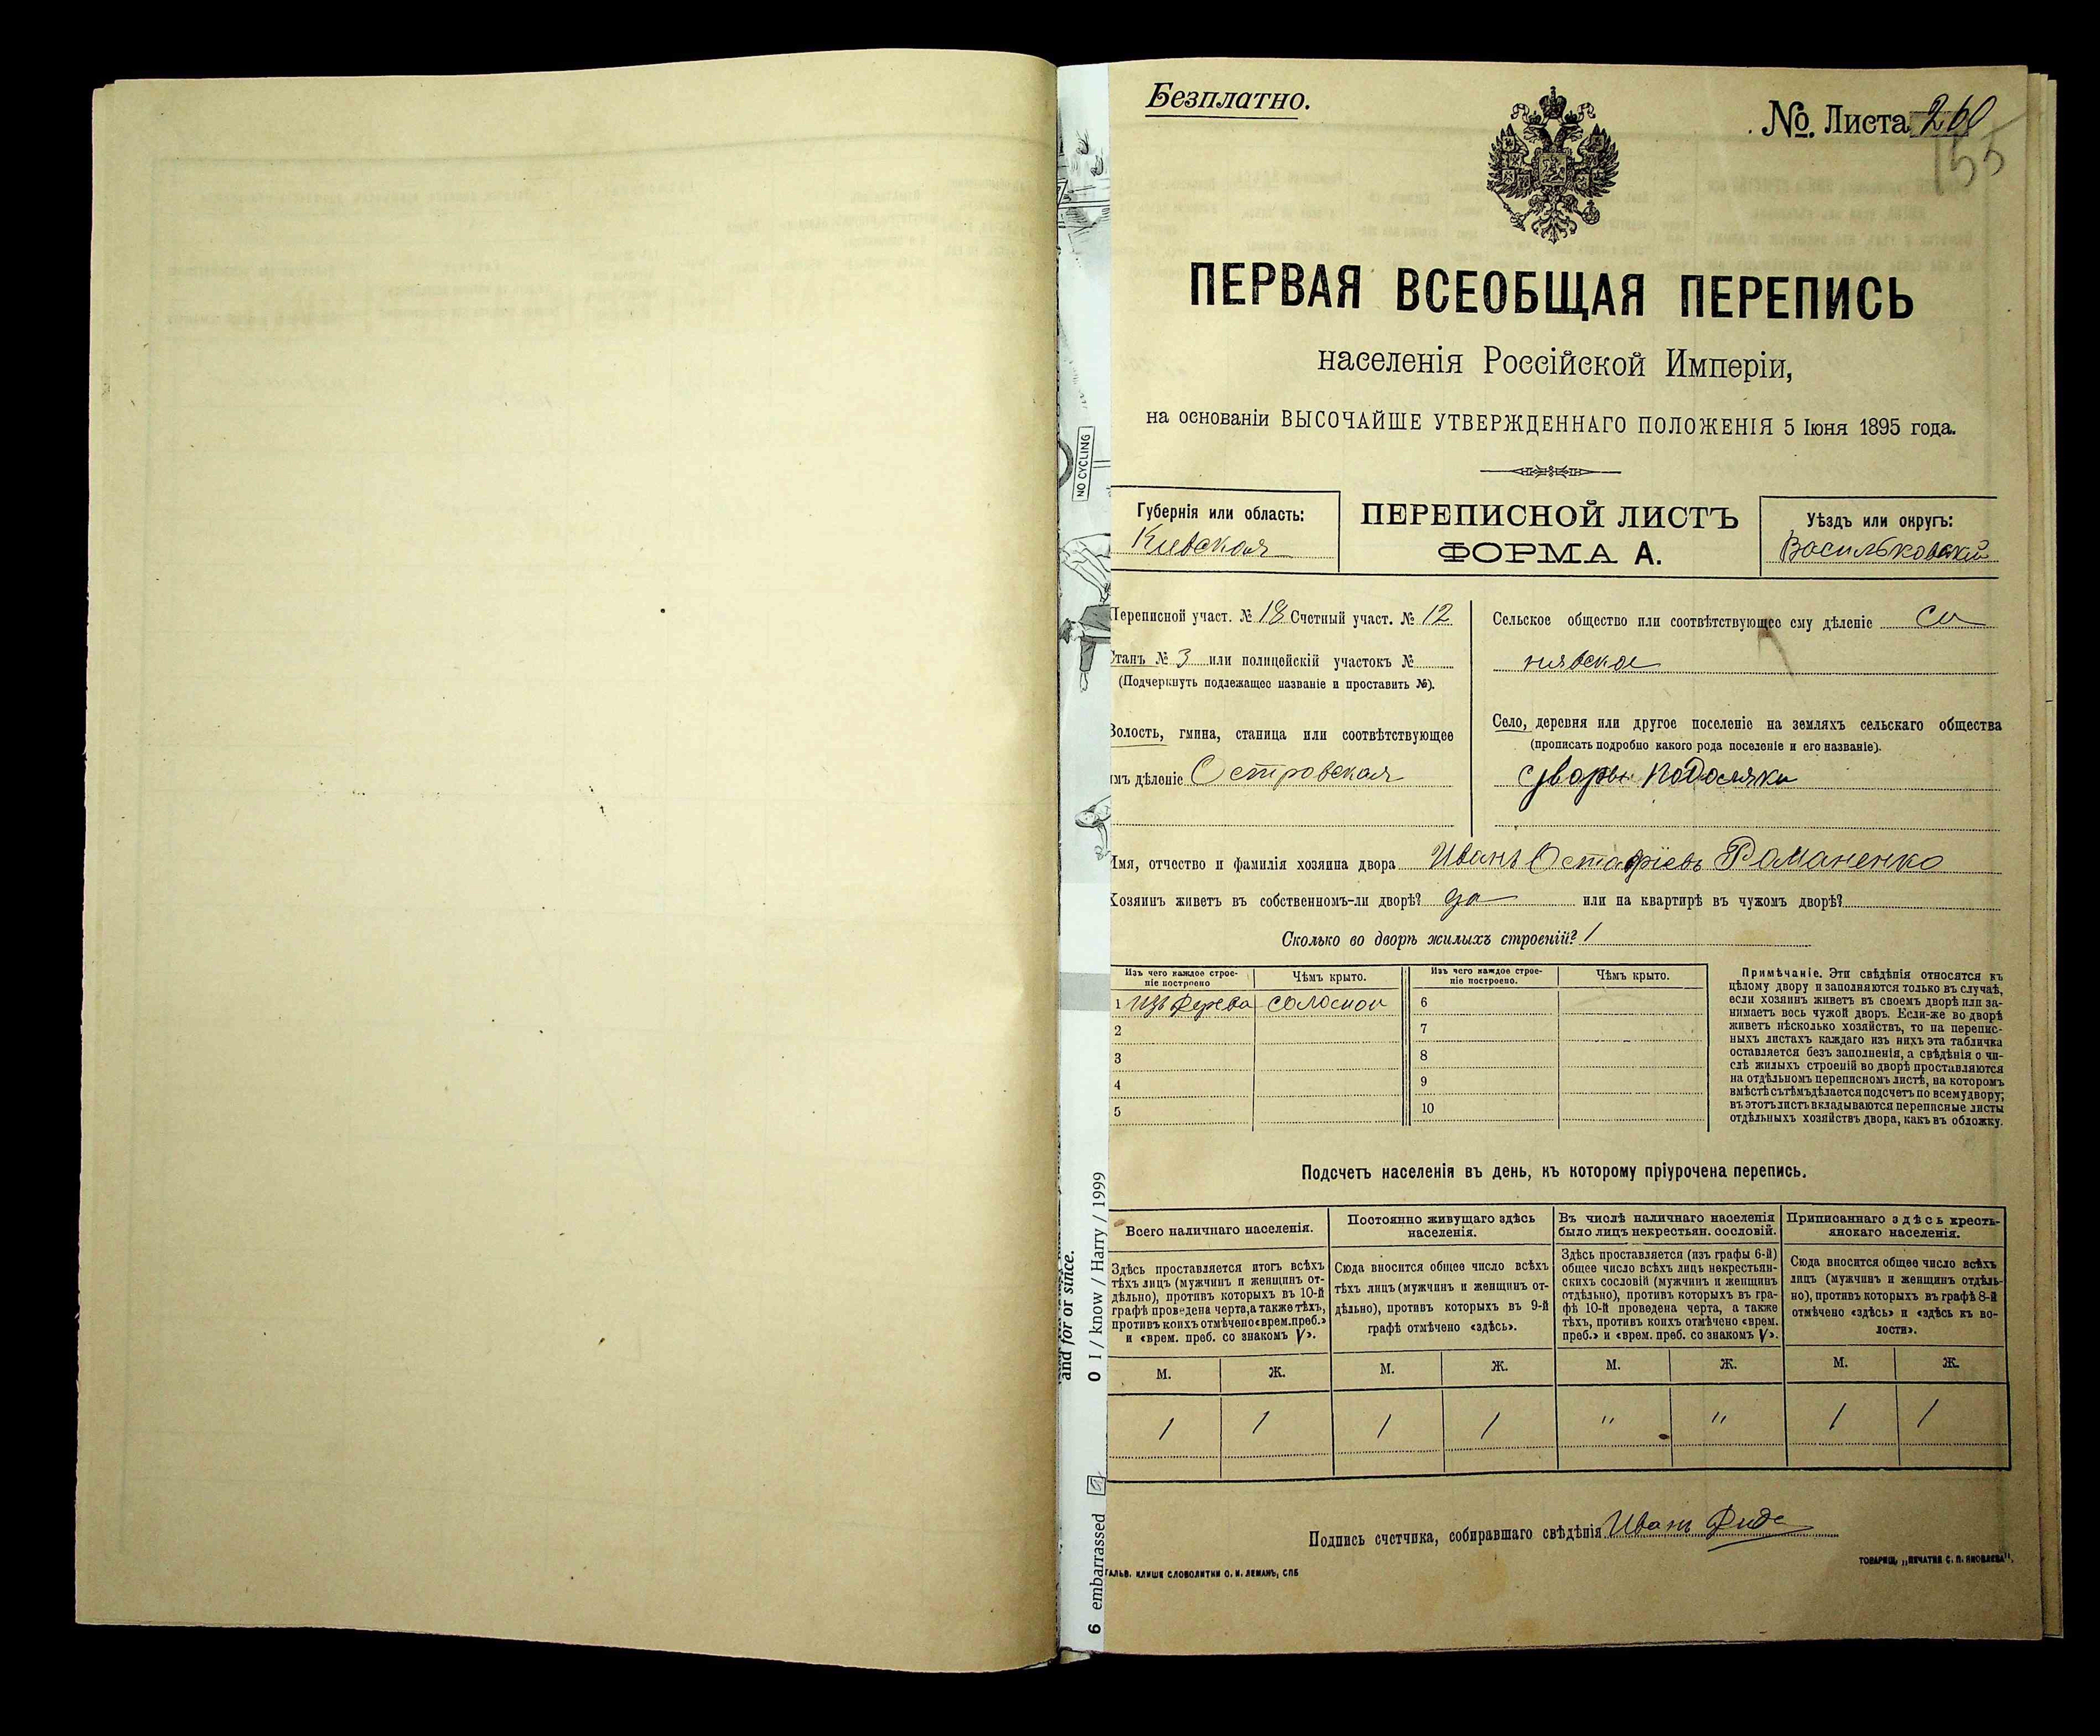 Безплатно.
№ Листа 260
155
ПЕРВАЯ ВСЕОБЩАЯ ПЕРЕПИСЬ
населенія Россійской Имперіи,
на основаніи ВЫСОЧАЙШЕ УТВЕРЖДЕННАГО ПОЛОЖЕНІЯ 5 Іюня 1895 года.
Губернія или область:
Киевская
ПЕРЕПИСНОЙ ЛИСТЪ
ФОРМА А.
Уѣздъ или округъ:
Васильковский
Переписной участ. № 18 Счетный участ. № 12
Станъ № 3 или полицейскій участокъ №
(Подчеркнуть подлежащее названіе и проставить №).
Волость, гмина, станица или соотвѣтствующее
имъ дѣленіе Островская
Сельское общество или соотвѣтствующее ему дѣленіе Си
нявское
Село, деревня или другое поселеніе на земляхъ сельскаго общества
(прописать подробно какого рода поселеніе и его названіе).
Подоляки
Имя, отчество и фамилія хозяина двора Иванъ Остафіевъ Романенко
Хозяинъ живетъ въ собственномъ-ли дворѣ? да или на квартирѣ въ чужомъ дворѣ?
Сколько во дворѣ жилыхъ строеній? 1
Изъ чего каждое строе-
ніе построено
Чѣмъ крыто.
Изъ чего каждое строе-
ніе построено.
Чѣмъ крыто.
1 Изъ дерева соломой 6
2 7
3 8
4 9
5 10
Примѣчаніе. Эти свѣдѣнія относятся къ
цѣлому двору и заполняются только въ случаѣ,
если хозяинъ живетъ въ своемъ дворѣ или за-
нимаетъ весь чужой дворъ. Если-же во дворѣ
живетъ нѣсколько хозяйствъ, то на перепис-
ныхъ листахъ каждаго изъ нихъ эта табличка
оставляется безъ заполненія, а свѣдѣнія о чи-
слѣ жилыхъ строеній во дворѣ проставляются
на отдѣльномъ переписномъ листѣ, на которомъ
вмѣстѣ съ тѣмъ дѣлается подсчетъ по всему двору;
въ этотъ листъ вкладываются переписные листы
отдѣльныхъ хозяйствъ двора, какъ въ обложку.
Подсчетъ населенія въ день, къ которому пріурочена перепись.
Всего наличнаго населенія.
Здѣсь проставляется итогъ всѣхъ
тѣхъ лицъ (мужчинъ и женщинъ от-
дѣльно), противъ которыхъ въ 10-й
графѣ проведена черта, а также тѣхъ,
противъ коихъ отмѣчено «врем. преб.»
и «врем. преб. со знакомъ V».
Постоянно живущаго здѣсь
населенія.
Сюда вносится общее число всѣхъ
тѣхъ лицъ (мужчинъ и женщинъ от-
дѣльно), противъ которыхъ въ 9-й
графѣ отмѣчено «здѣсь».
Въ числѣ наличнаго населенія
было лицъ некрестьян. сословій.
Здѣсь проставляется (изъ графы 6-й)
общее число всѣхъ лицъ некрестьян-
скихъ сословій (мужчинъ и женщинъ
отдѣльно), противъ которыхъ въ гра-
фѣ 10-й проведена черта, а также
тѣхъ, противъ коихъ отмѣчено «врем.
преб.» и «врем. преб. со знакомъ V».
Приписаннаго здѣсь кресть-
янскаго населенія.
Сюда вносится общее число всѣхъ
лицъ (мужчинъ и женщинъ отдѣль-
но), противъ которыхъ въ графѣ 8-й
отмѣчено «здѣсь» и «здѣсь къ во-
лости».
М. Ж. М. Ж. М. Ж. М. Ж.
1 1 1 1 " " 1 1
Подпись счетчика, собиравшаго свѣдѣнія Иванъ
ГАЛЬВ. КЛИШЕ СЛОВОЛИТНИ О. И. ЛЕМАНЪ, СПБ
ТОВАРИЩ. „ПЕЧАТНЯ С. П. ЯКОВЛЕВА".
NO CYCLING
and for or since.
0 I / know / Harry / 1999
6 embarrassed